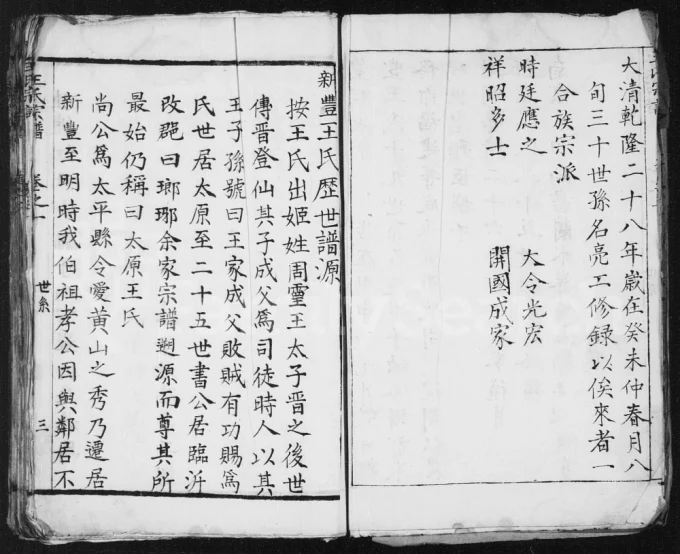 大清乾隆二十八年歲在癸未仲春月八
旬三十世孫名亮工修録以俟來者一
合族宗派
時廷應之 大令光宏
祥昭多士 開國成家
新豐王氏歷世譜源
按王氏出姬姓周靈王太子晉之後世
傳晉登仙其子成父為司徒時人以其
王子孫號曰王家成父敗賊有功賜為
氏世居太原至二十五世書公居臨沂
改郡曰瑯琊余家宗譜遡源而尊其所
最始仍稱曰太原王氏
尚公為太平縣令愛黃山之秀乃遷居
新豐至明時我伯祖孝公因與鄰居不
王氏宗譜 卷之一 世系 三